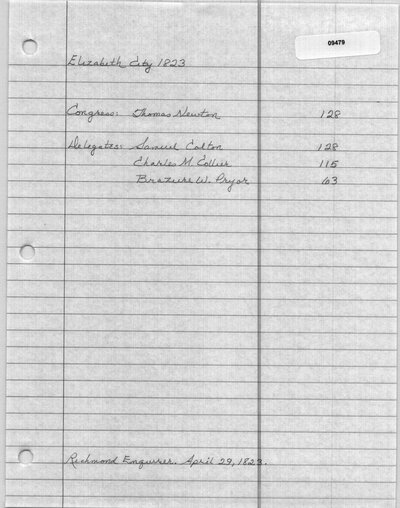 09479
Elizabeth City 1823
Congress: Thomas Newton 128
Delegates: Samuel Colton 128
Charles M. Collier 115
Brazure W. Pryor 63
Richmond Enquirer. April 29, 1823.